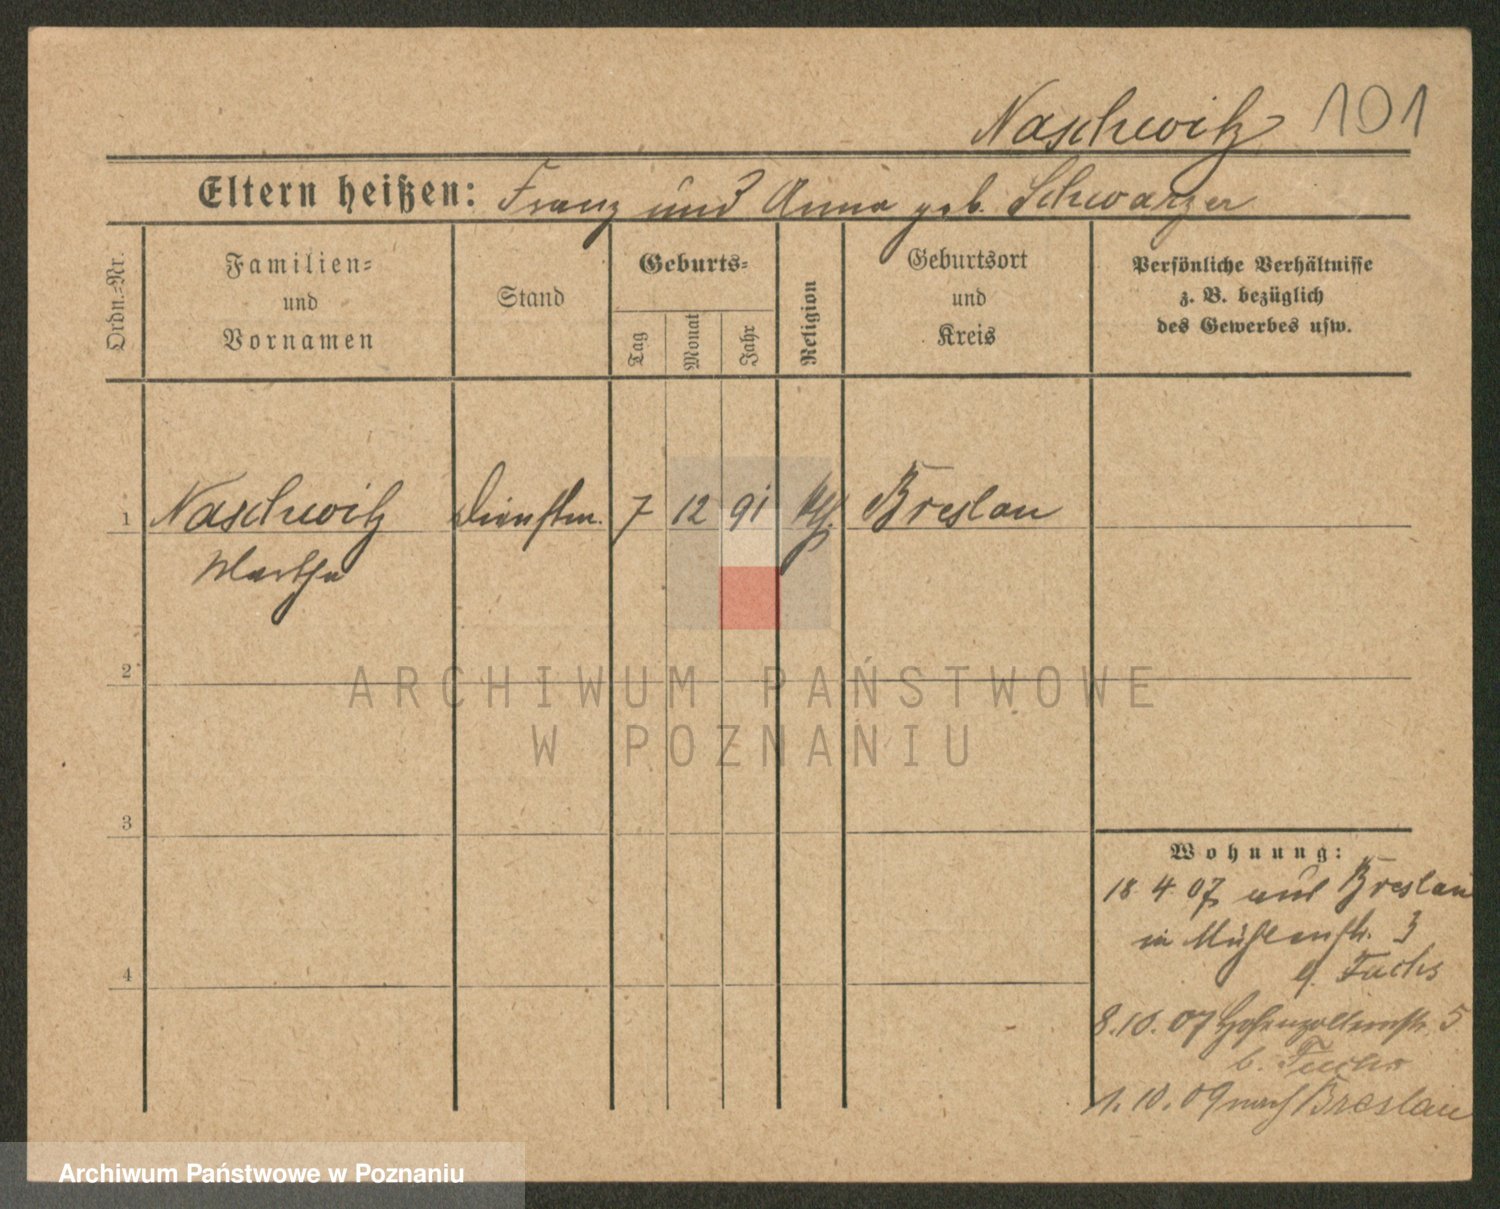 Naschwitz 101
Eltern heißen: Franz und Anna geb. Schwarzer
Ordn.-Nr.
Familien-
und
Vornamen
Stand
Geburts-
Tag
Monat
Jahr
Religion
Geburtsort
und
Kreis
Persönliche Verhältnisse
z. B. bezüglich
des Gewerbes usw.
1 Naschwitz Dienstm. 7 12 91 Breslau
Martha
2
ARCHIWUM PAŃSTWOWE
W POZNANIU
3
4
Wohnung:
18 4 07 aus Breslau
in Mühlenstr. 3
Fuchs
8.10.07 Hohenzollernstr. 5
b. Fuchs
1.10.09 nach Breslau
Archiwum Państwowe w Poznaniu